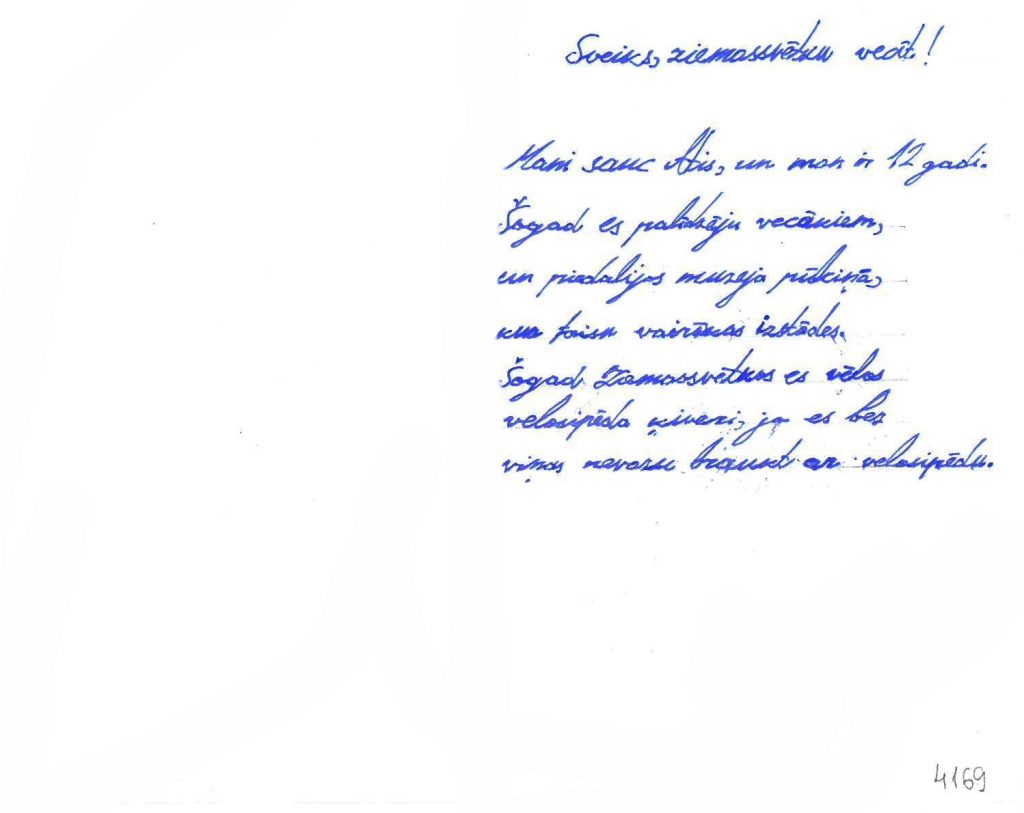 Sveiks, ziemassvētku vecīt!
Mani sauc Atis, un man ir 12 gadi.
Šogad es palīdzēju vecākiem,
un piedalijos muzeja pulciņā,
kur taisu vairākas izstādes.
Šogad Ziemassvētkos es vēlos
velosipēda ķiveri, jo es bez
viņas nevaru braukt ar velosipēdu.
4169